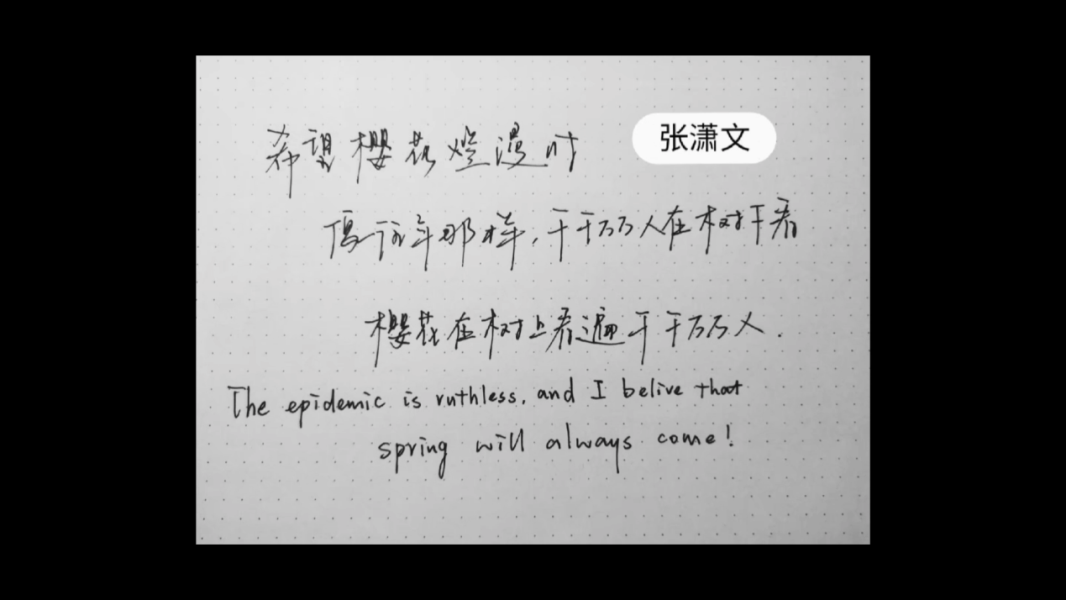 希望樱花烂漫时
张潇文
像往年那样，千千万万人在树下看
樱花在树上看遍千千万万人.
The epidemic is ruthless, and I belive that
spring will always come!